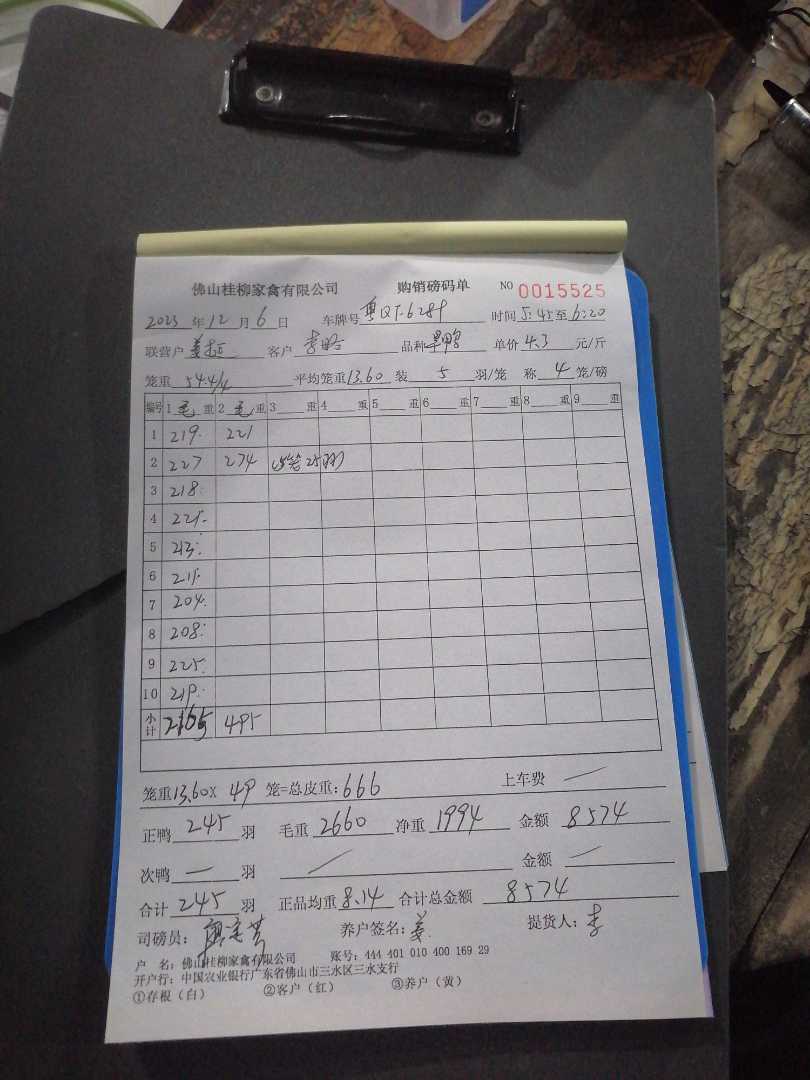 佛山桂柳家禽有限公司 购销磅码单 NO 0015525
2023 年 12 月 6 日 车牌号 粤QT6289 时间 5:45 至 6:20
联营户 姜 客户 李 品种 鸭 单价 4.3 元/斤
笼重 54.4/4 平均笼重 13.60 装 5 羽/笼 称 4 笼/磅
编号 1 毛 重 2 毛 重 3 重 4 重 5 重 6 重 7 重 8 重 9 重
1 219. 221
2 227 274 (5笼25羽)
3 218.
4 221.
5 213.
6 211.
7 204.
8 208.
9 225.
10 219.
小计 2165 495
笼重 13.60 X 49 笼=总皮重: 666 上车费 —
正鸭 245 羽 毛重 2660 净重 1994 金额 8574
次鸭 — 羽 — 金额 —
合计 245 羽 正品均重 8.14 合计总金额 8574
司磅员: 养户签名: 姜 提货人: 李
户 名: 佛山桂柳家禽有限公司 账号: 444 401 010 400 169 29
开户行: 中国农业银行广东省佛山市三水区三水支行
①存根（白） ②客户（红） ③养户（黄）